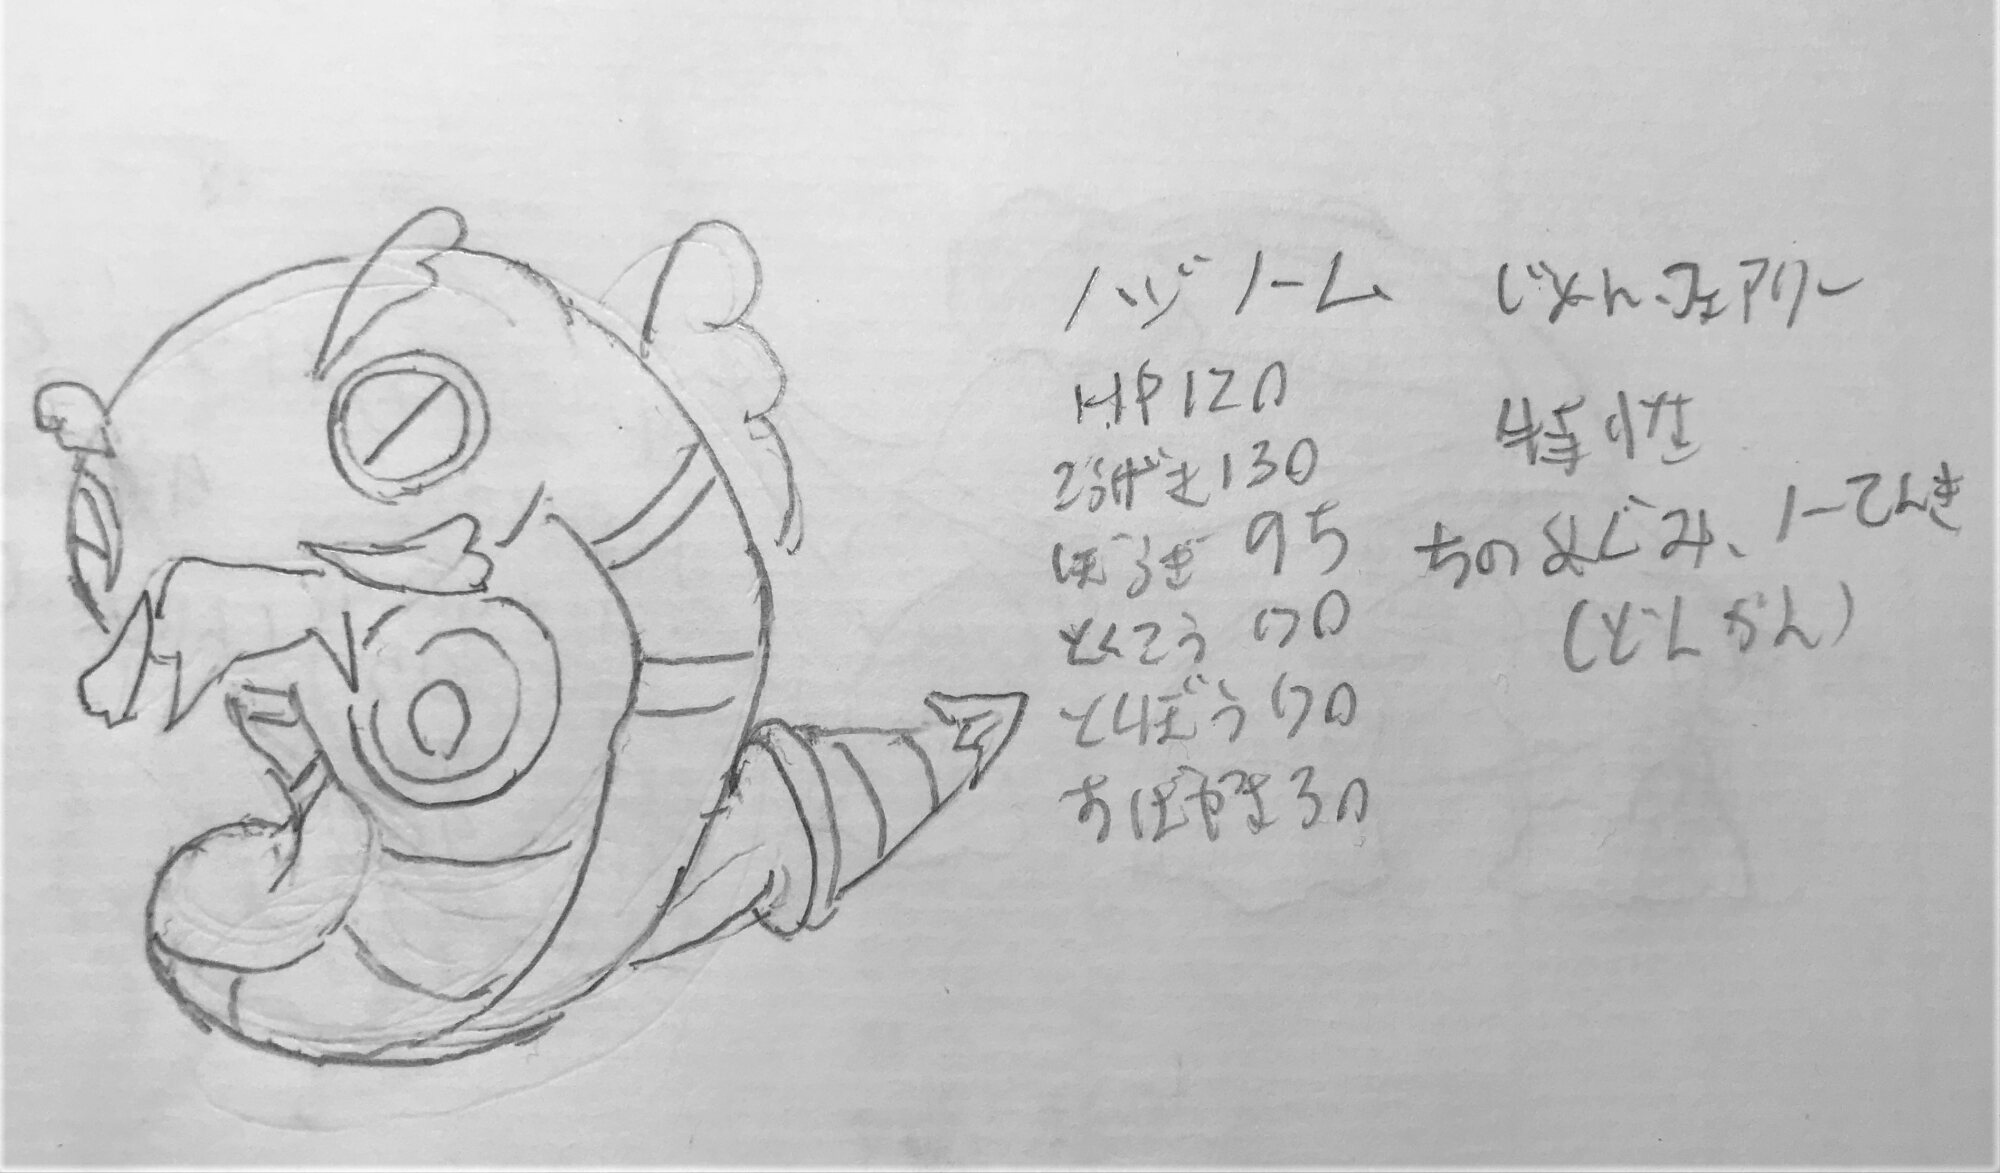 ハジノーム　じめん・フェアリー
HP120
こうげき130
ぼうぎ 95
とくこう 70
とくぼう 70
すばやさ30
特性
ちのめぐみ、ノーてんき
(どしかん)